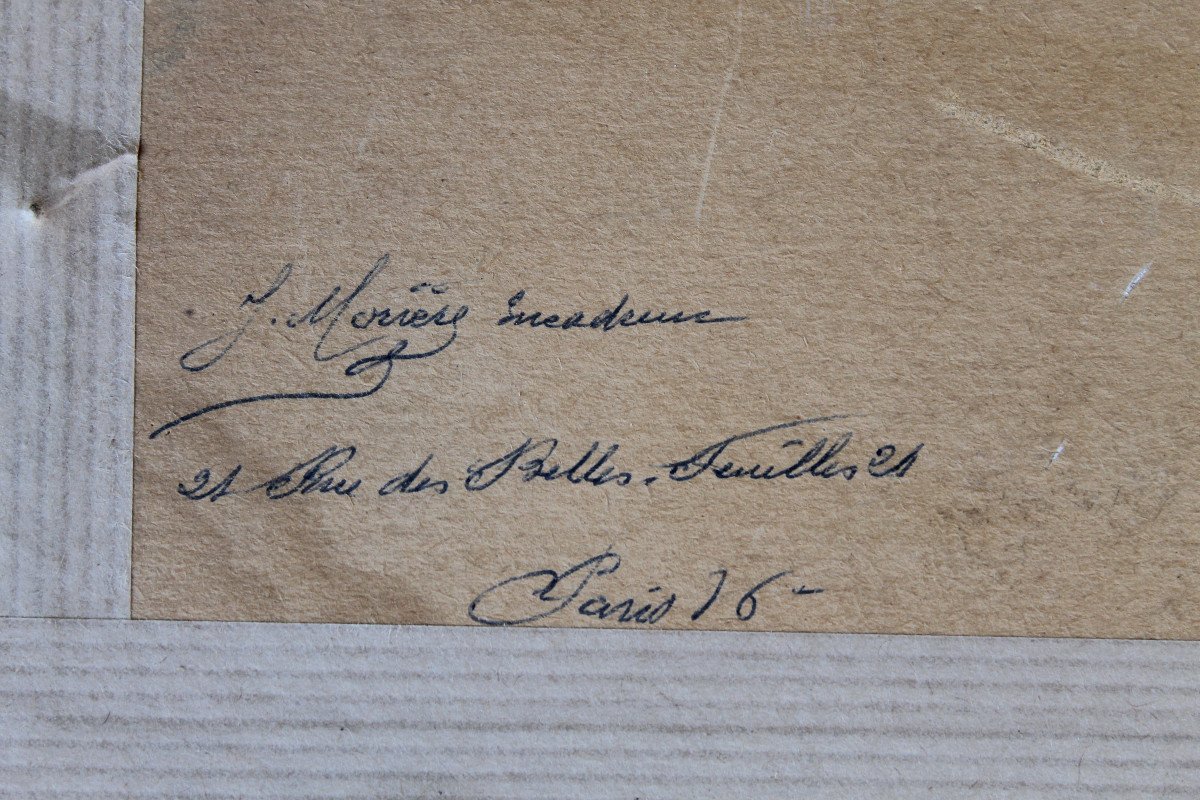 J. Morière Encadreur
21 Rue des Belles-Feuilles 21
Paris 16